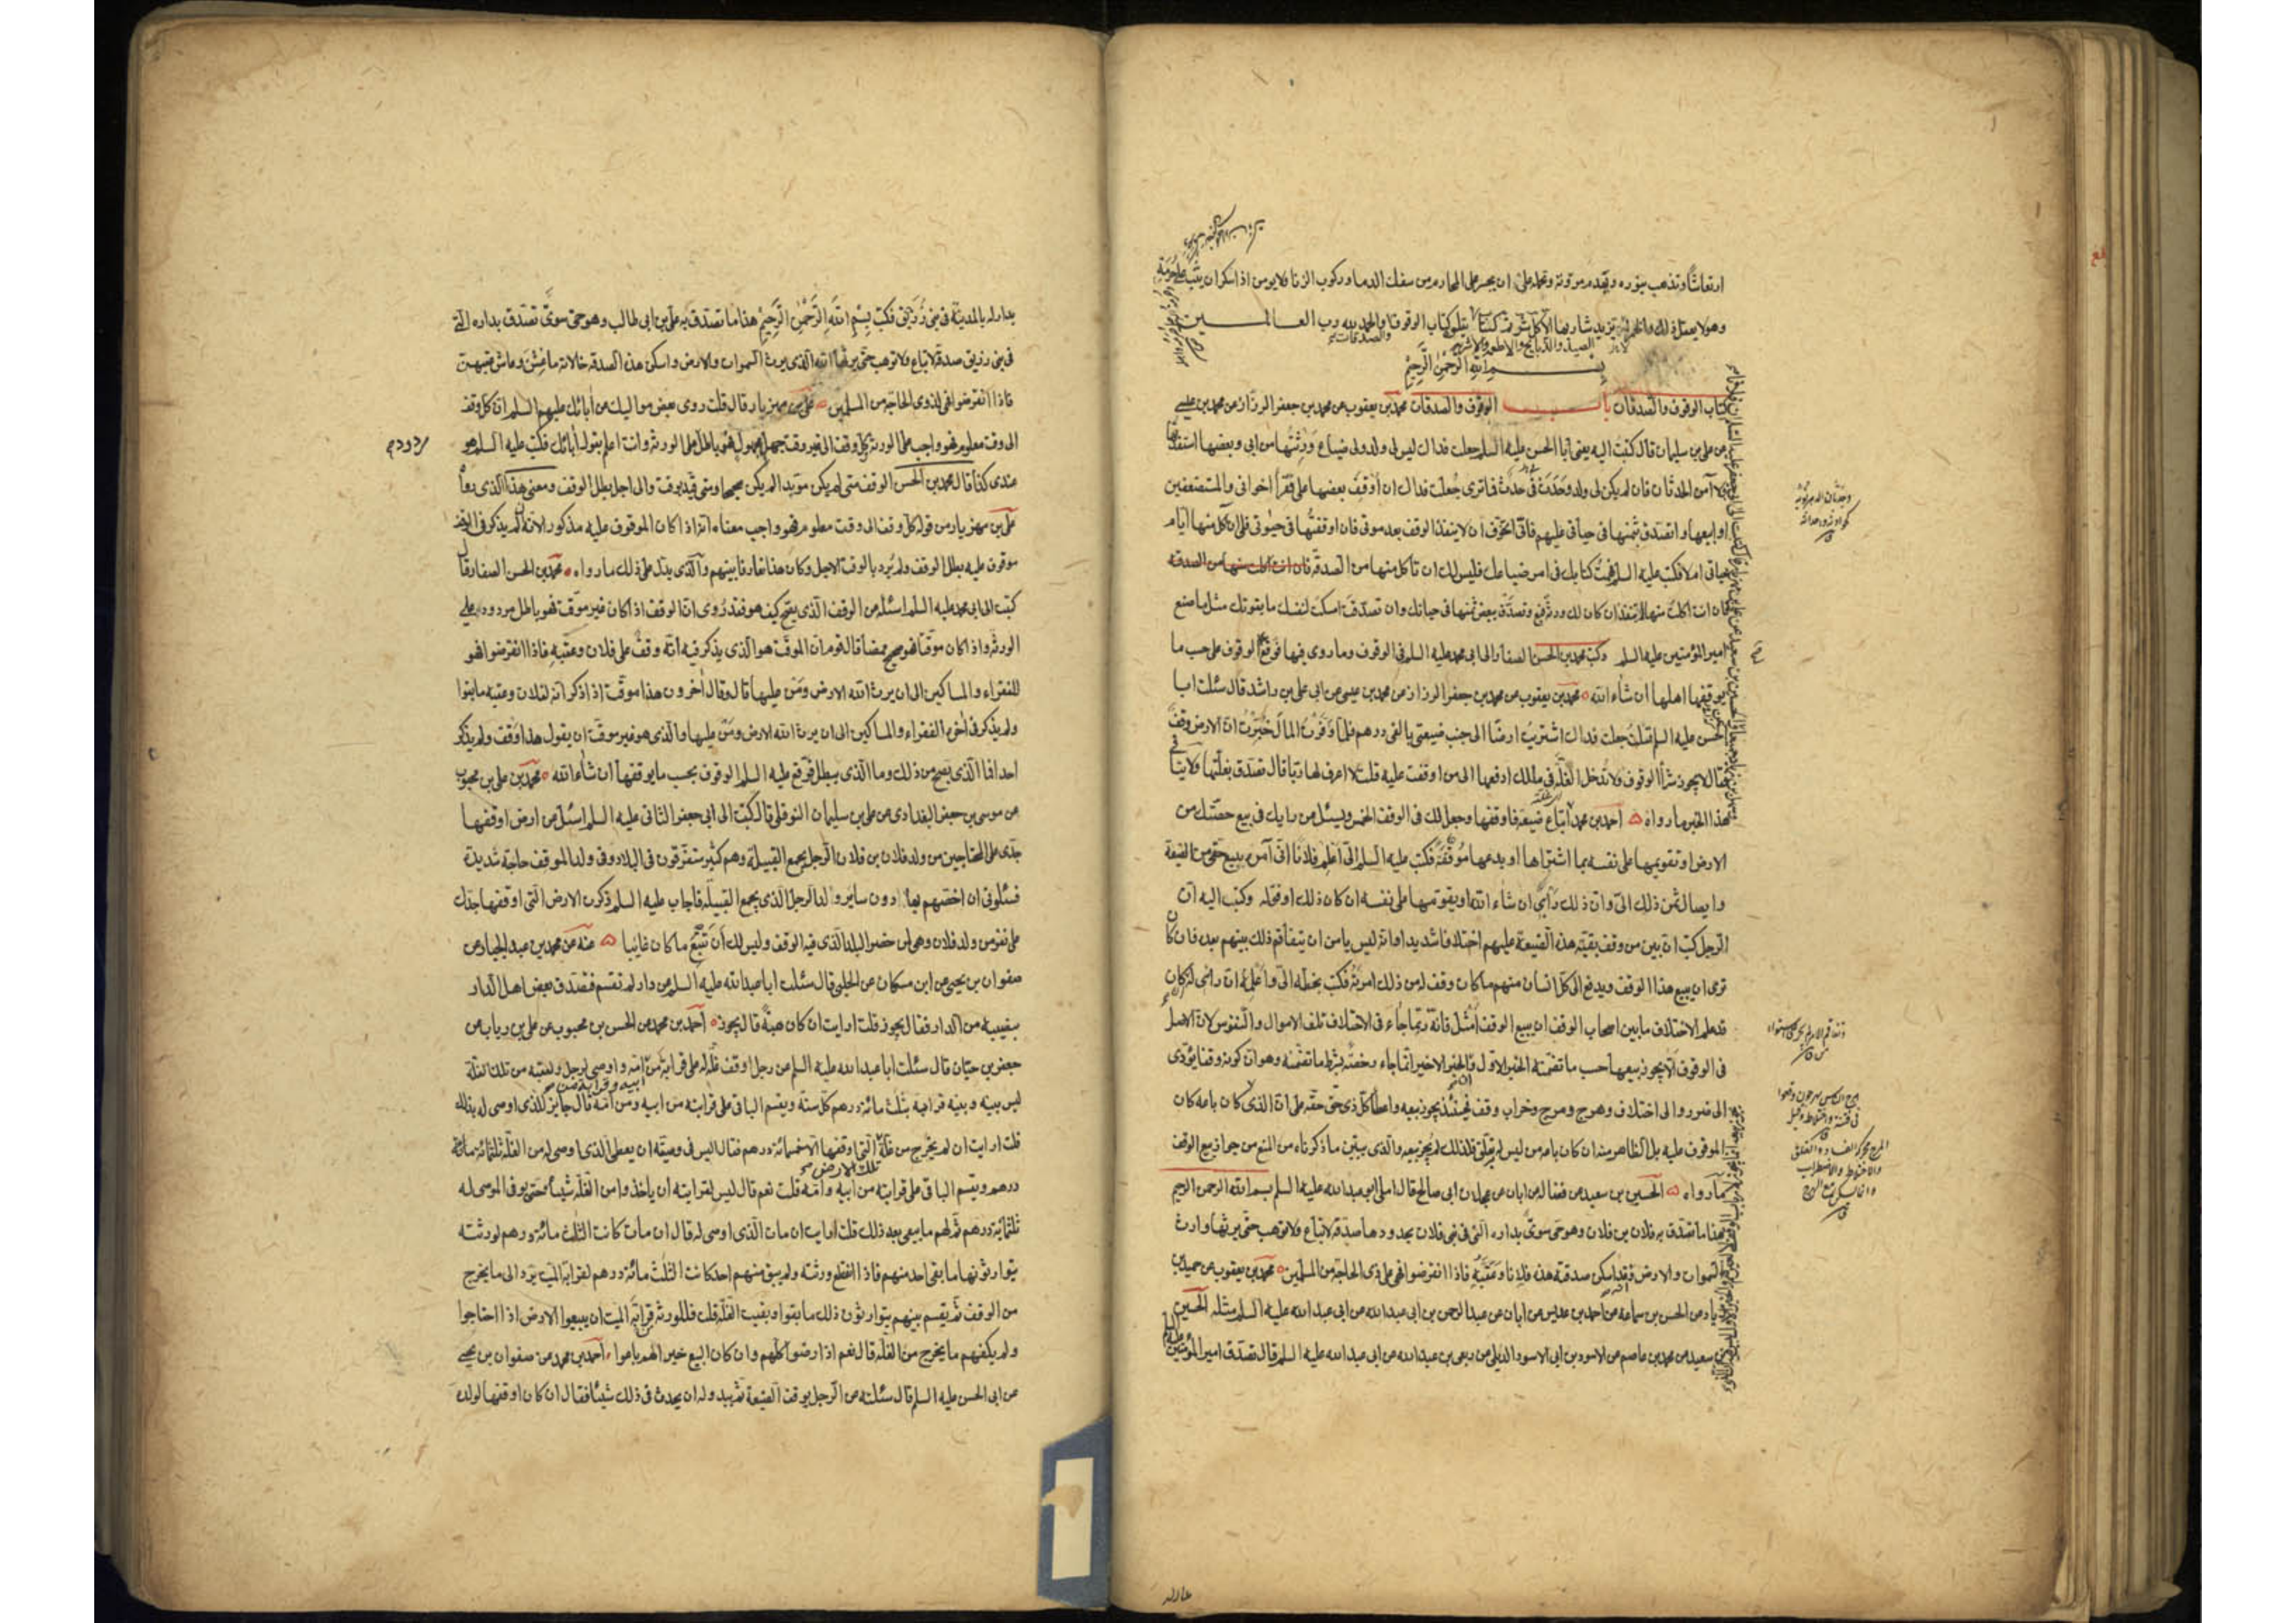 ارتعاشا وتذهب بنوره وتهدم مروته وتحمله على ان يجسر على المحارم من سفك الدماء وركوب الزنا فلا يومن اذا سكر ان يثب على حرمه
وهو لا يعقل ذلك والخمر لا تزيد شاربها الا كل شر تم كتاب يتلوه كتاب الوقوف والحمد لله رب العالمين
الصيد والذبايح والاطعمة والاشربة والصدقات
بسم الله الرحمن الرحيم
كتاب الوقوف والصدقات باب الوقوف والصدقات محمد بن يعقوب عن محمد بن جعفر الرزاز عن محمد بن عيسى
عن على بن سليمان قال كتبت اليه يعنى ابا الحسن عليه السلم جعلت فداك ليس لى ولد ولى ضياع ورثتها من ابى وبعضها استفدتها
ولا آمن الحدثان فان لم يكن لى ولد وحدث بى حدث فما ترى جعلت فداك ان أوقف بعضها على فقراء اخوانى والمستضعفين
او ابيعها واتصدق بثمنها فى حياتى عليهم فانى اتخوف ان لا ينفذ الوقف بعد موتى فان اوقفتها فى حيوتى فلى ان آكل منها ايام
حياتى ام لا فكتب عليه السلم فهمت كتابك فى امر ضياعك فليس لك ان تاكل منها من الصدقة فان انت اكلت منها من الصدقه
فان انت اكلت منها لم تنفذ ان كان لك ورثة فبع وتصدق ببعض ثمنها فى حياتك وان تصدقت امسكت لنفسك ما يقوتك مثل ما صنع
امير المؤمنين عليه السلم وكتب محمد بن الحسن الصفار الى ابى محمد عليه السلم فى الوقوف وما روى فيها فوقع الوقوف على حسب ما
يوقفها اهلها ان شاء الله محمد بن يعقوب عن محمد بن جعفر الرزاز عن محمد بن عيسى عن ابى على بن راشد قال سئلت ابا
الحسن عليه السلم قلت جعلت فداك اشتريت ارضا الى جنب ضيعتى بالفى درهم فلما وفرت المال خبرت ان الارض وقف
فقال لا يجوز شراء الوقوف ولا تدخل الغلة فى ملكك ادفعها الى من اوقفت عليه قلت لا اعرف لها ربا قال تصدق بغلتها فلا ينافى
هذا الخبر ما رواه احمد بن محمد ابتاع ضيعة فاوقفها وجعل لك فى الوقف الخمس ويسئل عن رايك فى بيع حصتك من
الارض او تقويمها على نفسه بما اشتراها او يدعها موقفة فكتب عليه السلم الى اعلم فلانا انى آمره ببيع حقى من الضيعة
وايصال ثمن ذلك الى وان ذلك رأيى ان شاء الله او يقومها على نفسه ان كان ذلك اوفق له وكتبت اليه ان
الرجل كتب ان بين من وقف بقية هذه الضيعة عليهم اختلافا شديدا وانه ليس يامن ان يتفاقم ذلك بينهم بعده فان كان
ترى ان يبيع هذا الوقف ويدفع الى كل انسان منهم ما كان وقف له من ذلك امرته فكتب بخطه الى واعلمه ان رائى له ان كان
قد علم الاختلاف ما بين اصحاب الوقف ان يبيع الوقف امثل فانه ربما جاء فى الاختلاف تلف الاموال والنفوس لان الاصل
فى الوقوف الا يجوز بيعها حسب ما تضمنته الخبر الاول والخبر الاخير انما جاء رخصة بشرط ما تضمنه وهو ان كونه وقفا يؤدى
الى ضرر والى اختلاف وهرج ومرج وخراب وقف فحينئذ يجوز بيعه واعطاء كل ذى حق حقه على ان الذى كان باعه كان
الموقوف عليه بل الظاهر منه ان كان باعه من ليس له تعلق فلذلك لم يجز بيعه والذى يبين ما ذكرناه من المنع من جواز بيع الوقف
ما رواه الحسين بن سعيد عن فضالة عن ابان عن عجلان ابى صالح قال املى ابو عبد الله عليه السلم بسم الله الرحمن الرحيم
هذا ما تصدق به فلان بن فلان وهو حى سوى بداره التى فى بنى فلان بحدودها صدقة لا تباع ولا توهب حتى يرثها وارث
السموات والارض وقد اسكن صدقته هذه فلانا وعقبه فاذا انقرضوا فهى على ذى الحاجة من المسلمين محمد بن يعقوب عن حميد بن
زياد عن الحسن بن سماعة عن احمد بن عديس عن ابان عن عبد الرحمن بن ابى عبد الله عن ابى عبد الله عليه السلم مثله الحسين
بن سعيد عن محمد بن عاصم عن الاسود بن ابى الاسود الدئلى عن ربعى بن عبد الله عن ابى عبد الله عليه السلم قال تصدق امير المؤمنين
بدار له بالمدينة فى بنى زريق فكتب بسم الله الرحمن الرحيم هذا ما تصدق به على بن ابى طالب وهو حى سوى تصدق بداره التى
فى بنى زريق صدقة لا تباع ولا توهب حتى يرثها الله الذى يرث السموات والارض واسكن هذه الصدقة خالاته ما عشن وعاش عقبهن
فاذا انقرضوا فهى لذوى الحاجة من المسلمين على بن مهزيار قال قلت روى بعض مواليك عن آبائك عليهم السلم ان كل وقف
الى وقت معلوم فهو واجب على الورثة وكل وقف الى غير وقت جهل مجهول فهو باطل على الورثة وانت اعلم بقول آبائك فكتب عليه السلم هو
عندى كذا قال محمد بن الحسن الوقف متى لم يكن مؤبدا لم يكن صحيحا ومتى قيد بوقت والى اجل بطل الوقف ومعنى هذا الذى رواه
على بن مهزيار من قوله كل وقف الى وقت معلوم فهو واجب معناه انه اذا كان الموقوف عليه مذكورا لانه ان لم يذكر فى الوقف
موقوف عليه بطل الوقف ولم يرد بالوقت الاجل وكان هذا تعارفا بينهم والذى يدل على ذلك ما رواه محمد بن الحسن الصفار قال
كتبت الى ابى محمد عليه السلم اسئله عن الوقف الذى يصح كيف هو فقد روى ان الوقف اذا كان غير موقت فهو باطل مردود على
الورثة واذا كان موقتا فهو صحيح ممضا قال قوم ان الموقت هو الذى يذكر فيه انه وقف على فلان وعقبه فاذا انقرضوا فهو
للفقراء والمساكين الى ان يرث الله الارض ومن عليها قال وقال آخرون هذا موقت اذا ذكر انه لفلان وعقبه ما بقوا
ولم يذكر فى آخره الفقراء والمساكين الى ان يرث الله الارض ومن عليها والذى هو غير موقت ان يقول هذا وقف ولم يذكر
احدا فما الذى يصح من ذلك وما الذى يبطل فوقع عليه السلم الوقوف بحسب ما يوقفها ان شاء الله محمد بن على بن محبوب
عن موسى بن جعفر البغدادى عن على بن سليمان النوفلى قال كتبت الى ابى جعفر الثانى عليه السلم اسئله عن ارض اوقفها
جدى على المحتاجين من ولد فلان بن فلان الرجل يجمع القبيلة وهم كثير متفرقون فى البلاد وفى ولد الموقف حاجة شديدة
فسئلونى ان اخصهم بها دون ساير ولد الرجل الذى يجمع القبيلة فاجاب عليه السلم ذكرت الارض التى اوقفها جدك
على فقر من ولد فلان وهى لمن حضر البلد الذى فيه الوقف وليس لك ان تتبع ما كان غايبا عنه عن محمد بن عبد الجبار عن
صفوان بن يحيى عن ابن مسكان عن الحلبى قال سئلت ابا عبد الله عليه السلم عن دار لم تقسم فتصدق بعض اهل الدار
بنصيبه من الدار فقال يجوز قلت ارايت ان كان هبة قال يجوز احمد بن محمد عن الحسن بن محبوب عن على بن رياب عن
جعفر بن حيان قال سئلت ابا عبد الله عليه السلم عن رجل اوقف غلة له على قرابة من امه واوصى لرجل ولعقبه من تلك الغلة
ابيه وقرابة من
ليس بينه وبينه قرابة بثلث مائة درهم كل سنة ويقسم الباقى على قرابته من ابيه ومن امه قال جايز للذى اوصى له بذلك
قلت ارايت ان لم يخرج من غلة التى اوقفها الا خمسمائة درهم فقال اليس فى وصيته ان يعطى الذى اوصى له من الغلة ثلثمائة
تلك الارض
درهم ويقسم الباقى على قرابته من ابيه وامه قلت نعم قال ليس لقرابته ان ياخذوا من الغلة شيئا حتى يوفى الموصى له
ثلثمائة درهم ثم لهم ما يبقى بعد ذلك قلت ارايت ان مات الذى اوصى له قال ان مات كانت الثلث مائة درهم لورثته
يتوارثونها ما بقى احد منهم فاذا انقطع ورثته ولم يبق منهم احد كانت الثلث مائة درهم لقرابة الميت يرد الى ما يخرج
من الوقف ثم يقسم بينهم يتوارثون ذلك ما بقوا وبقيت الغلة قلت فللورثة قرابة الميت ان يبيعوا الارض اذا احتاجوا
ولم يكفهم ما يخرج من الغلة قال نعم اذا رضوا كلهم وان كان البيع خيرا لهم باعوا احمد بن محمد عن صفوان بن يحيى
عن ابى الحسن عليه السلم قال سئلته عن الرجل يوقف الضيعة ثم يبدو له ان يحدث فى ذلك شيئا فقال ان كان اوقفها لولده